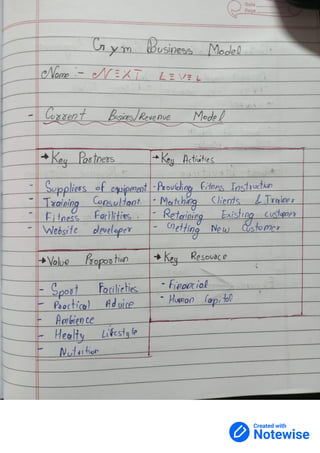 Date
Page
Gym Business Model
Name :- NEXT LEVEL
- Current Busines/Revenue Model
→ Key Partners
- Suppliers of equipment
- Training Consultant
- Fitness Facilities.
- Website developer
→ Key Activities
- Providing Fitness Instruction
- Matching Clients & Trainer
- Retaining Existing customer
- Getting New Customer
→ Value Proposition
- Sport Facilieties
- Practical Advice
- Ambience
- Healty Lifestyle
- Nutrition
→ Key Resource
- Financial
- Human Capital
Created with
Notewise